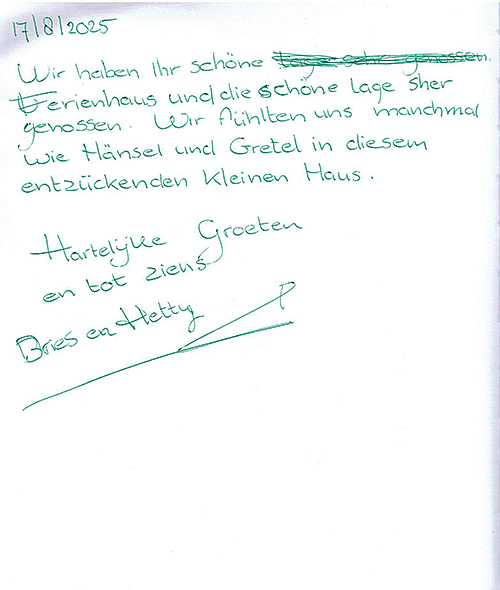 17/8/2025
Wir haben Ihr schöne Lage sehr genossen.
Ferienhaus und die schöne Lage sher
genossen. Wir fühlten uns manchmal
wie Hänsel und Gretel in diesem
entzückenden kleinen Haus.
Hartelijke Groeten
en tot ziens
Dries en Hetty